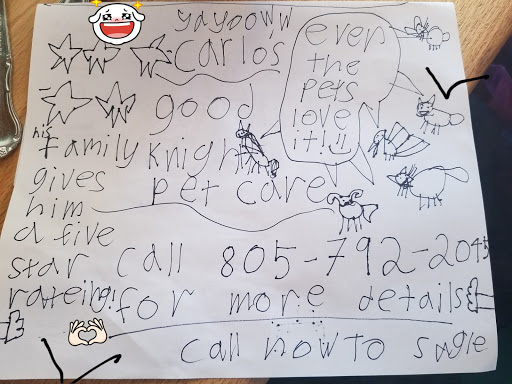 yayooww
Carlos
good
Knight
pet care
even
the
pets
love
it!!
his
family
gives
him
a five
star
rateing!
call 805-792-2045
for more details
call now to sngle